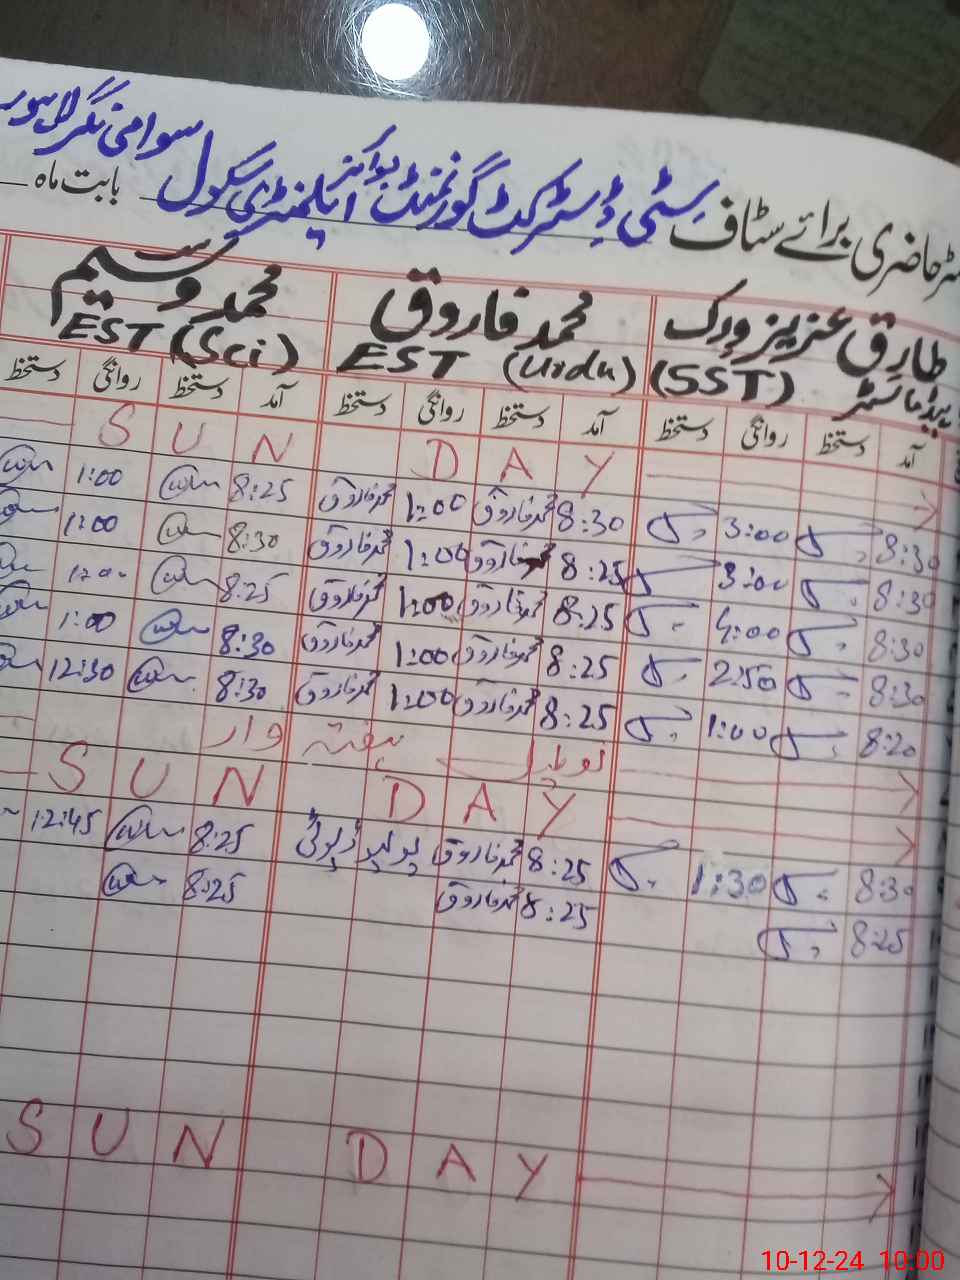 حاضری برائے سٹاف سٹی ڈسٹرکٹ گورنمنٹ بوائز ایلمنٹری سکول سوامی نگر لاہور بابت ماہ
طارق عزیز ورک محمد فاروق محمد وسیم
ہیڈ ماسٹر (SST) EST (Urdu) EST (Sci)
آمد دستخط روانگی دستخط آمد دستخط روانگی دستخط آمد دستخط روانگی دستخط
SUNDAY
8:30 3:00 8:30 محمد فاروق 1:00 محمد فاروق 8:25 1:00
8:30 3:00 8:25 محمد فاروق 1:00 محمد فاروق 8:30 1:00
8:30 4:00 8:25 محمد فاروق 1:00 محمد فاروق 8:25
8:30 2:50 8:25 محمد فاروق 1:00 محمد فاروق 8:30 1:00
8:20 1:00 8:25 محمد فاروق 1:00 محمد فاروق 8:30 12:30
ہفتہ وار تعطیل
SUNDAY
8:30 1:30 8:25 محمد فاروق پولیو ڈیوٹی 8:25 12:45
8:25 8:25 محمد فاروق 8:25
SUNDAY
10-12-24 10:00